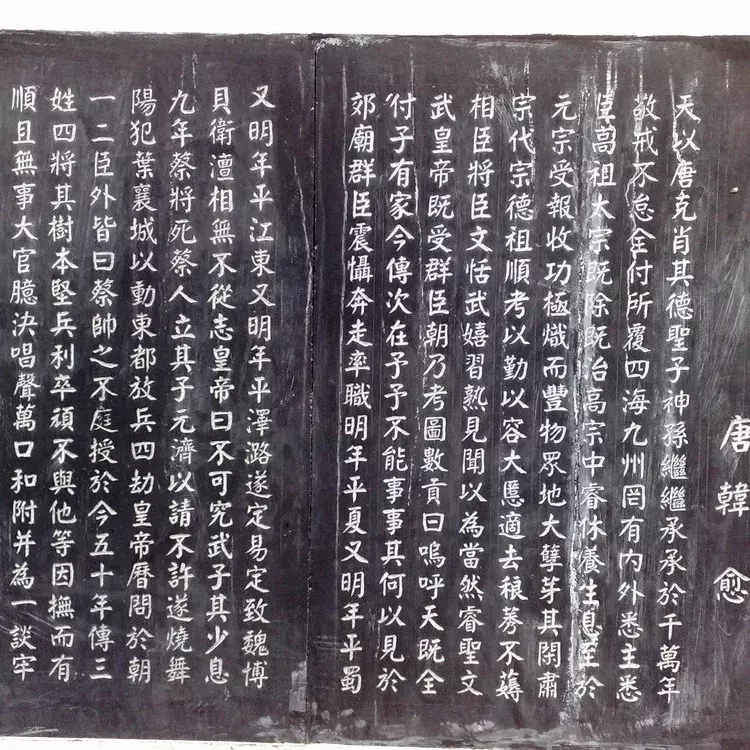 唐韓愈
天以唐克肖其德聖子神孫繼繼承承於千萬年
敬戒不怠全付所覆四海九州罔有内外悉主悉
臣高祖太宗既除既治高宗中睿休養生息至於
元宗受報收功極熾而豐物眾地大孽芽其閒肅
宗代宗德祖順考以勤以容大慝適去稂莠不薅
相臣將臣文恬武嬉習熟見聞以為當然睿聖文
武皇帝既受群臣朝乃考圖數貢曰嗚呼天既全
付子有家今傳次在予予不能事事其何以見於
郊廟群臣震懾奔走率職明年平夏又明年平蜀
又明年平江東又明年平澤潞遂定易定致魏博
貝衛澶相無不從志皇帝曰不可究武子其少息
九年蔡將死蔡人立其子元濟以請不許遂燒舞
陽犯葉襄城以動東都放兵四劫皇帝曆問於朝
一二臣外皆曰蔡帥之不庭授於今五十年傳三
姓四將其樹本堅兵利卒頑不與他等因撫而有
順且無事大官臆決唱聲萬口和附并為一談牢